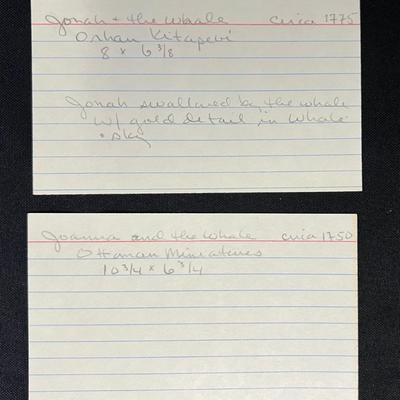 Jonah + the whale circa 1775
Orhan Kitapevi
8 x 6 3/8
Jonah swallowed by the whale
w/ gold detail in whale
• sky
Joanna and the whale circa 1750
Ottoman Miniatures
10 3/4 x 6 3/4